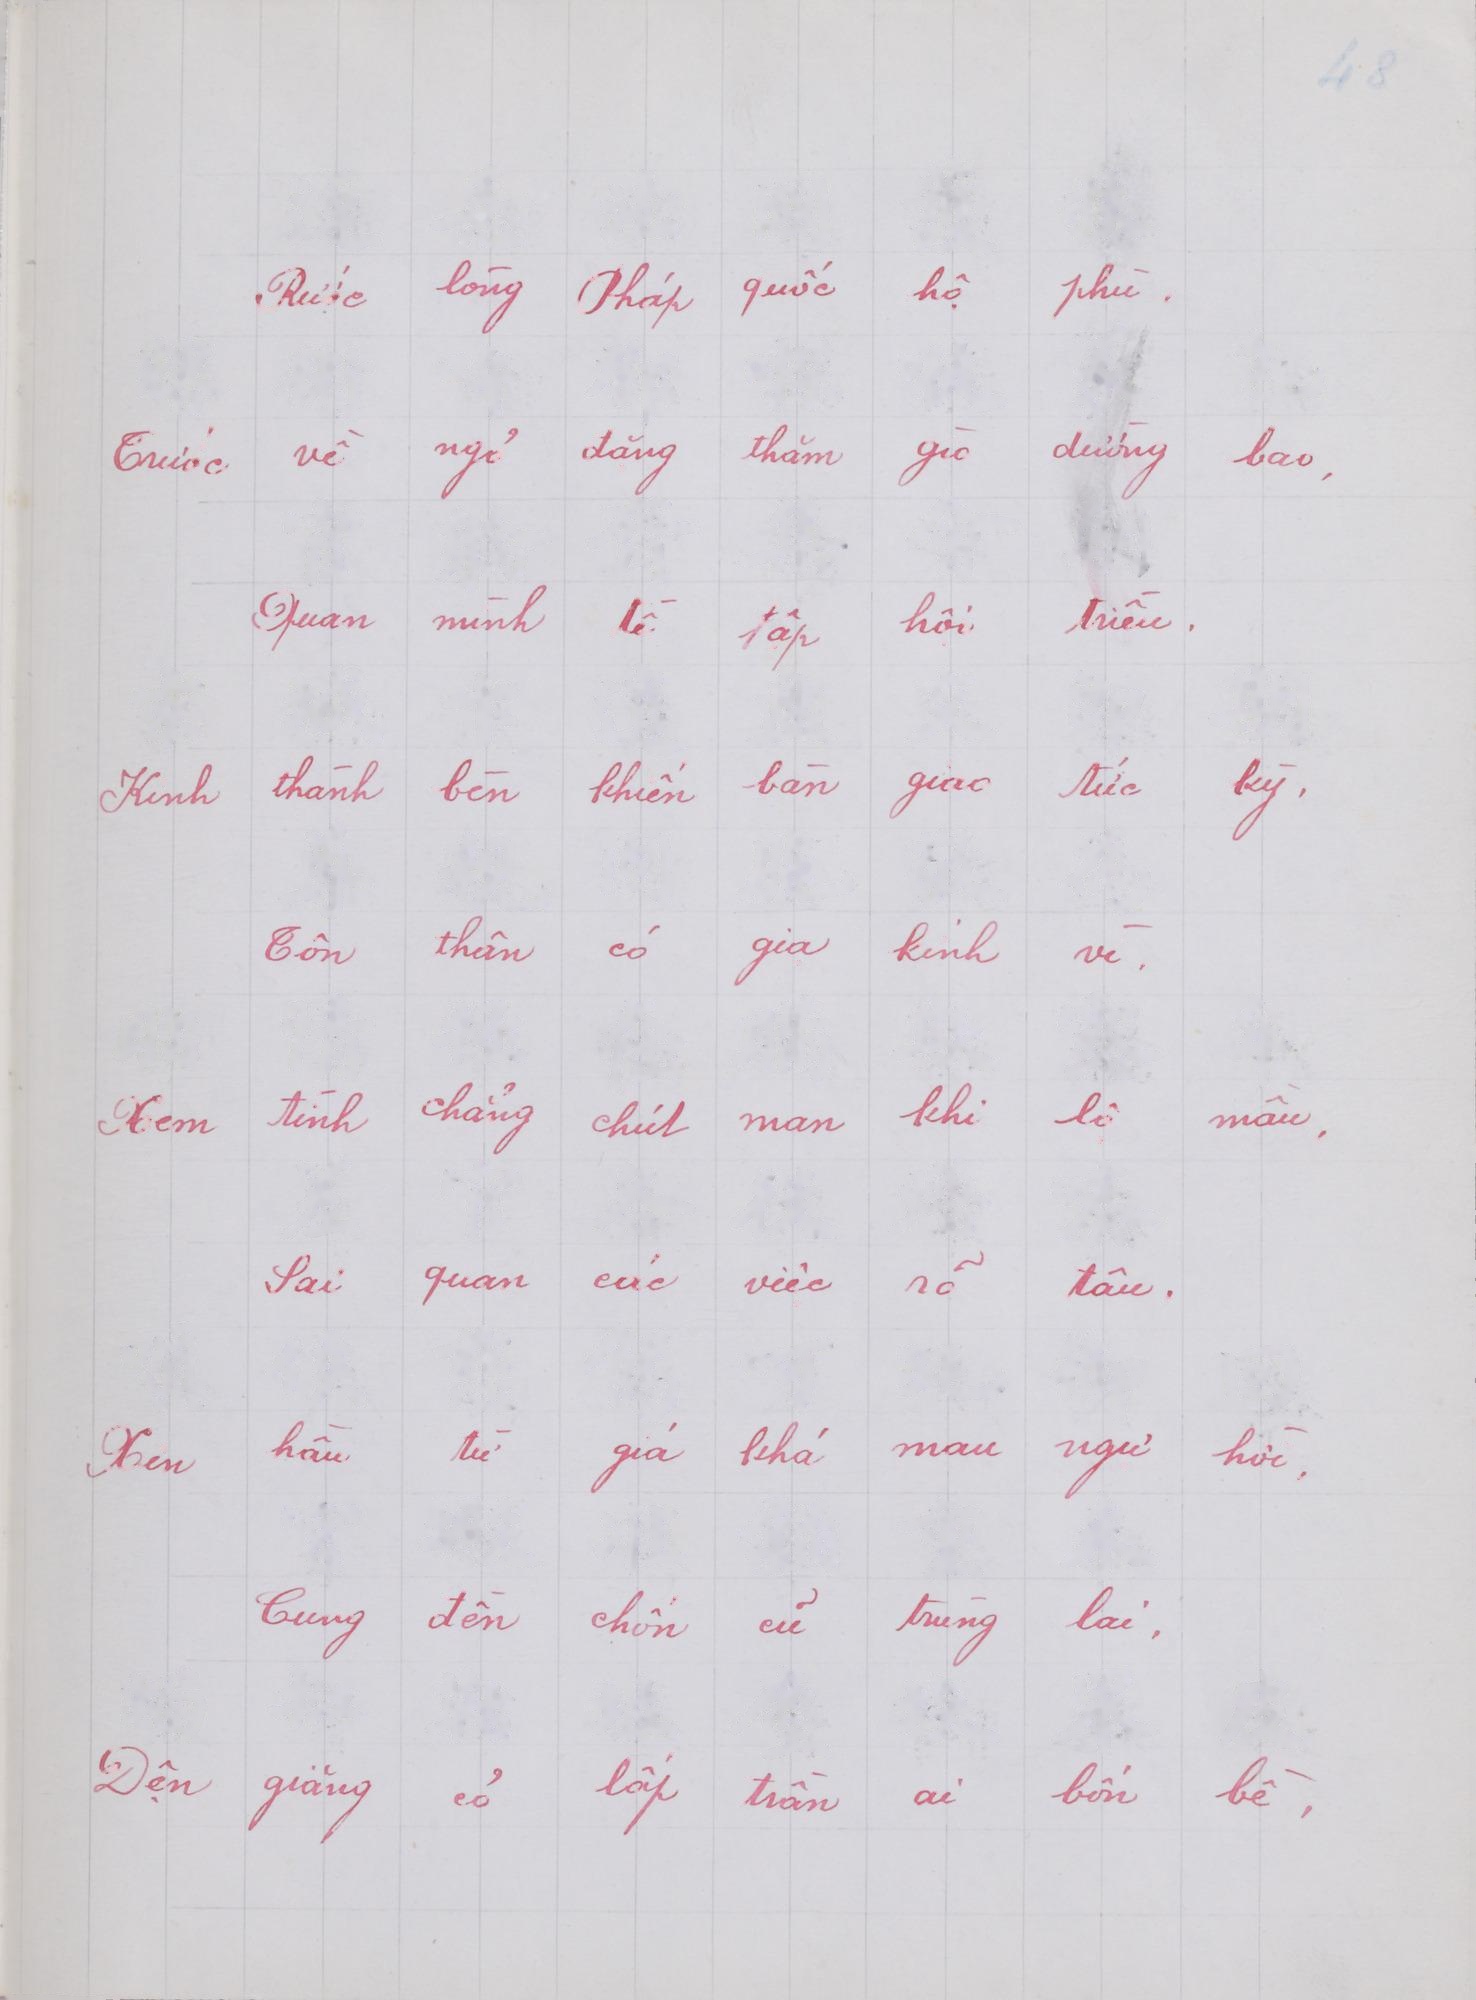 48
Rước lòng Pháp quốc hộ phù.
Trước về ngỏ đăng thăm giò dường bao,
Quan minh tề tập hồi triều.
Kinh thành bèn khiến bàn giao tức kỳ,
Tôn thân có gia kinh vì.
Xem tình chẳng chút man khi lô mầu,
Sai quan các viêc rõ tâu.
Xen hầu từ giá khá mau ngư hồi,
Cung đền chốn cũ trùng lai,
Dện giăng cỏ lấp trần ai bốn bề,